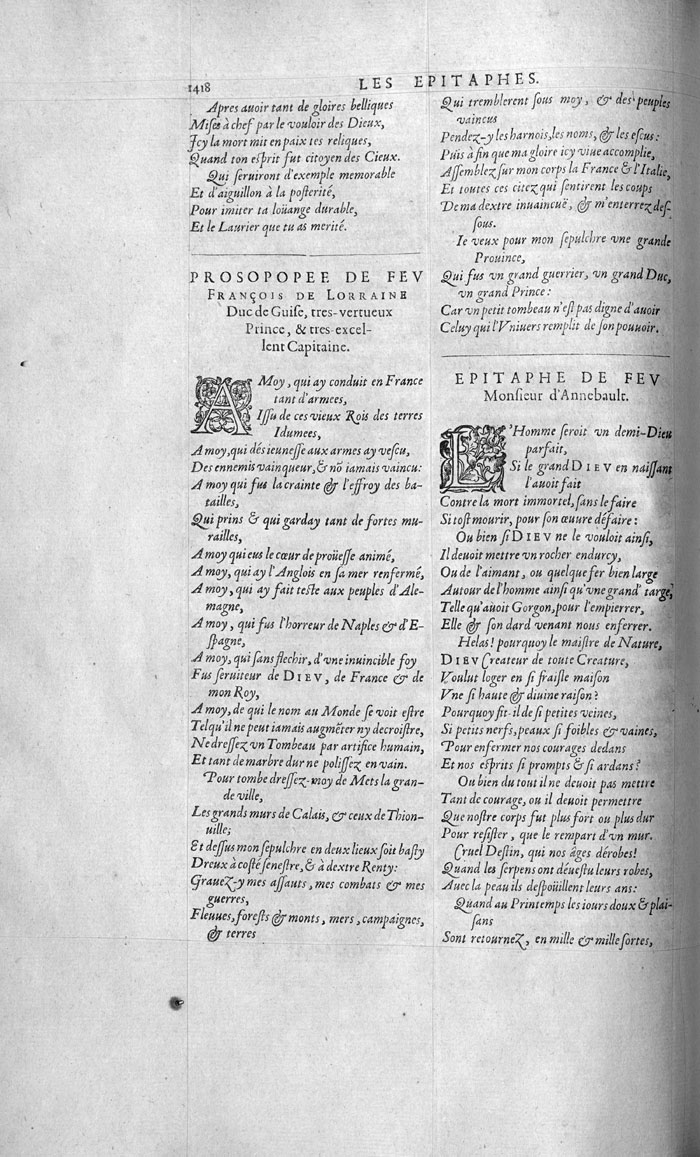 1418
LES EPITAPHES.
Apres auoir tant de gloires belliques
Mises à chef par le vouloir des Dieux,
Icy la mort mit en paix tes reliques,
Quand ton esprit fut citoyen des Cieux.
Qui seruiront d'exemple memorable
Et d'aiguillon à la posterité,
Pour imiter ta loüange durable,
Et le Laurier que tu as merité.
PROSOPOPEE DE FEV
FRANÇOIS DE LORRAINE
Duc de Guise, tres-vertueux
Prince, & tres-excel-
lent Capitaine.
A Moy, qui ay conduit en France
tant d'armees,
Issu de ces vieux Rois des terres
Idumees,
A moy, qui dés ieunesse aux armes ay vescu,
Des ennemis vainqueur, & nõ iamais vaincu:
A moy qui fus la crainte & l'effroy des ba-
tailles,
Qui prins & qui garday tant de fortes mu-
railles,
A moy qui eus le cœur de proüesse animé,
A moy, qui ay l'Anglois en sa mer renfermé,
A moy, qui ay fait teste aux peuples d'Ale-
magne,
A moy, qui fus l'horreur de Naples & d'E-
spagne,
A moy, qui sans flechir, d'vne inuincible foy
Fus seruiteur de DIEV, de France & de
mon Roy,
A moy, de qui le nom au Monde se voit estre
Tel qu'il ne peut iamais augmẽter ny decroistre,
Ne dressez vn Tombeau par artifice humain,
Et tant de marbre dur ne polissez en vain.
Pour tombe dressez-moy de Mets la gran-
de ville,
Les grands murs de Calais, & ceux de Thion-
uille;
Et dessus mon sepulchre en deux lieux soit basty
Dreux à costé senestre, & à dextre Renty:
Grauez-y mes assauts, mes combats & mes
guerres,
Fleuues, forests & monts, mers, campaignes,
& terres
Qui tremblerent sous moy, & des peuples
vaincus
Pendez-y les harnois, les noms, & les escus:
Puis à fin que ma gloire icy viue accomplie,
Assemblez sur mon corps la France & l'Italie,
Et toutes ces citez qui sentirent les coups
De ma dextre inuaincuë, & m'enterrez des-
sous.
Ie veux pour mon sepulchre vne grande
Prouince,
Qui fus vn grand guerrier, vn grand Duc,
vn grand Prince:
Car vn petit tombeau n'est pas digne d'auoir
Celuy qui l'Vniuers remplit de son pouuoir.
EPITAPHE DE FEV
Monsieur d'Annebault.
L'Homme seroit vn demi-Dieu
parfait,
Si le grand DIEV en naissant
l'auoit fait
Contre la mort immortel, sans le faire
Si tost mourir, pour son œuure défaire:
Ou bien si DIEV ne le vouloit ainsi,
Il deuoit mettre vn rocher endurcy,
Ou de l'aimant, ou quelque fer bien large
Autour de l'homme ainsi qu'vne grand' targe,
Telle qu'auoit Gorgon, pour l'empierrer,
Elle & son dard venant nous enferrer.
Helas! pourquoy le maistre de Nature,
DIEV Createur de toute Creature,
Voulut loger en si fraisle maison
Vne si haute & diuine raison?
Pourquoy fit-il de si petites veines,
Si petits nerfs, peaux si foibles & vaines,
Pour enfermer nos courages dedans
Et nos esprits si prompts & si ardans?
Ou bien du tout il ne deuoit pas mettre
Tant de courage, ou il deuoit permettre
Que nostre corps fut plus fort ou plus dur
Pour resister, que le rempart d'vn mur.
Cruel Destin, qui nos âges dérobes!
Quand les serpens ont déuestu leurs robes,
Auec la peau ils despoüillent leurs ans:
Quand au Printemps les iours doux & plai-
sans
Sont retournez, en mille & mille sortes,